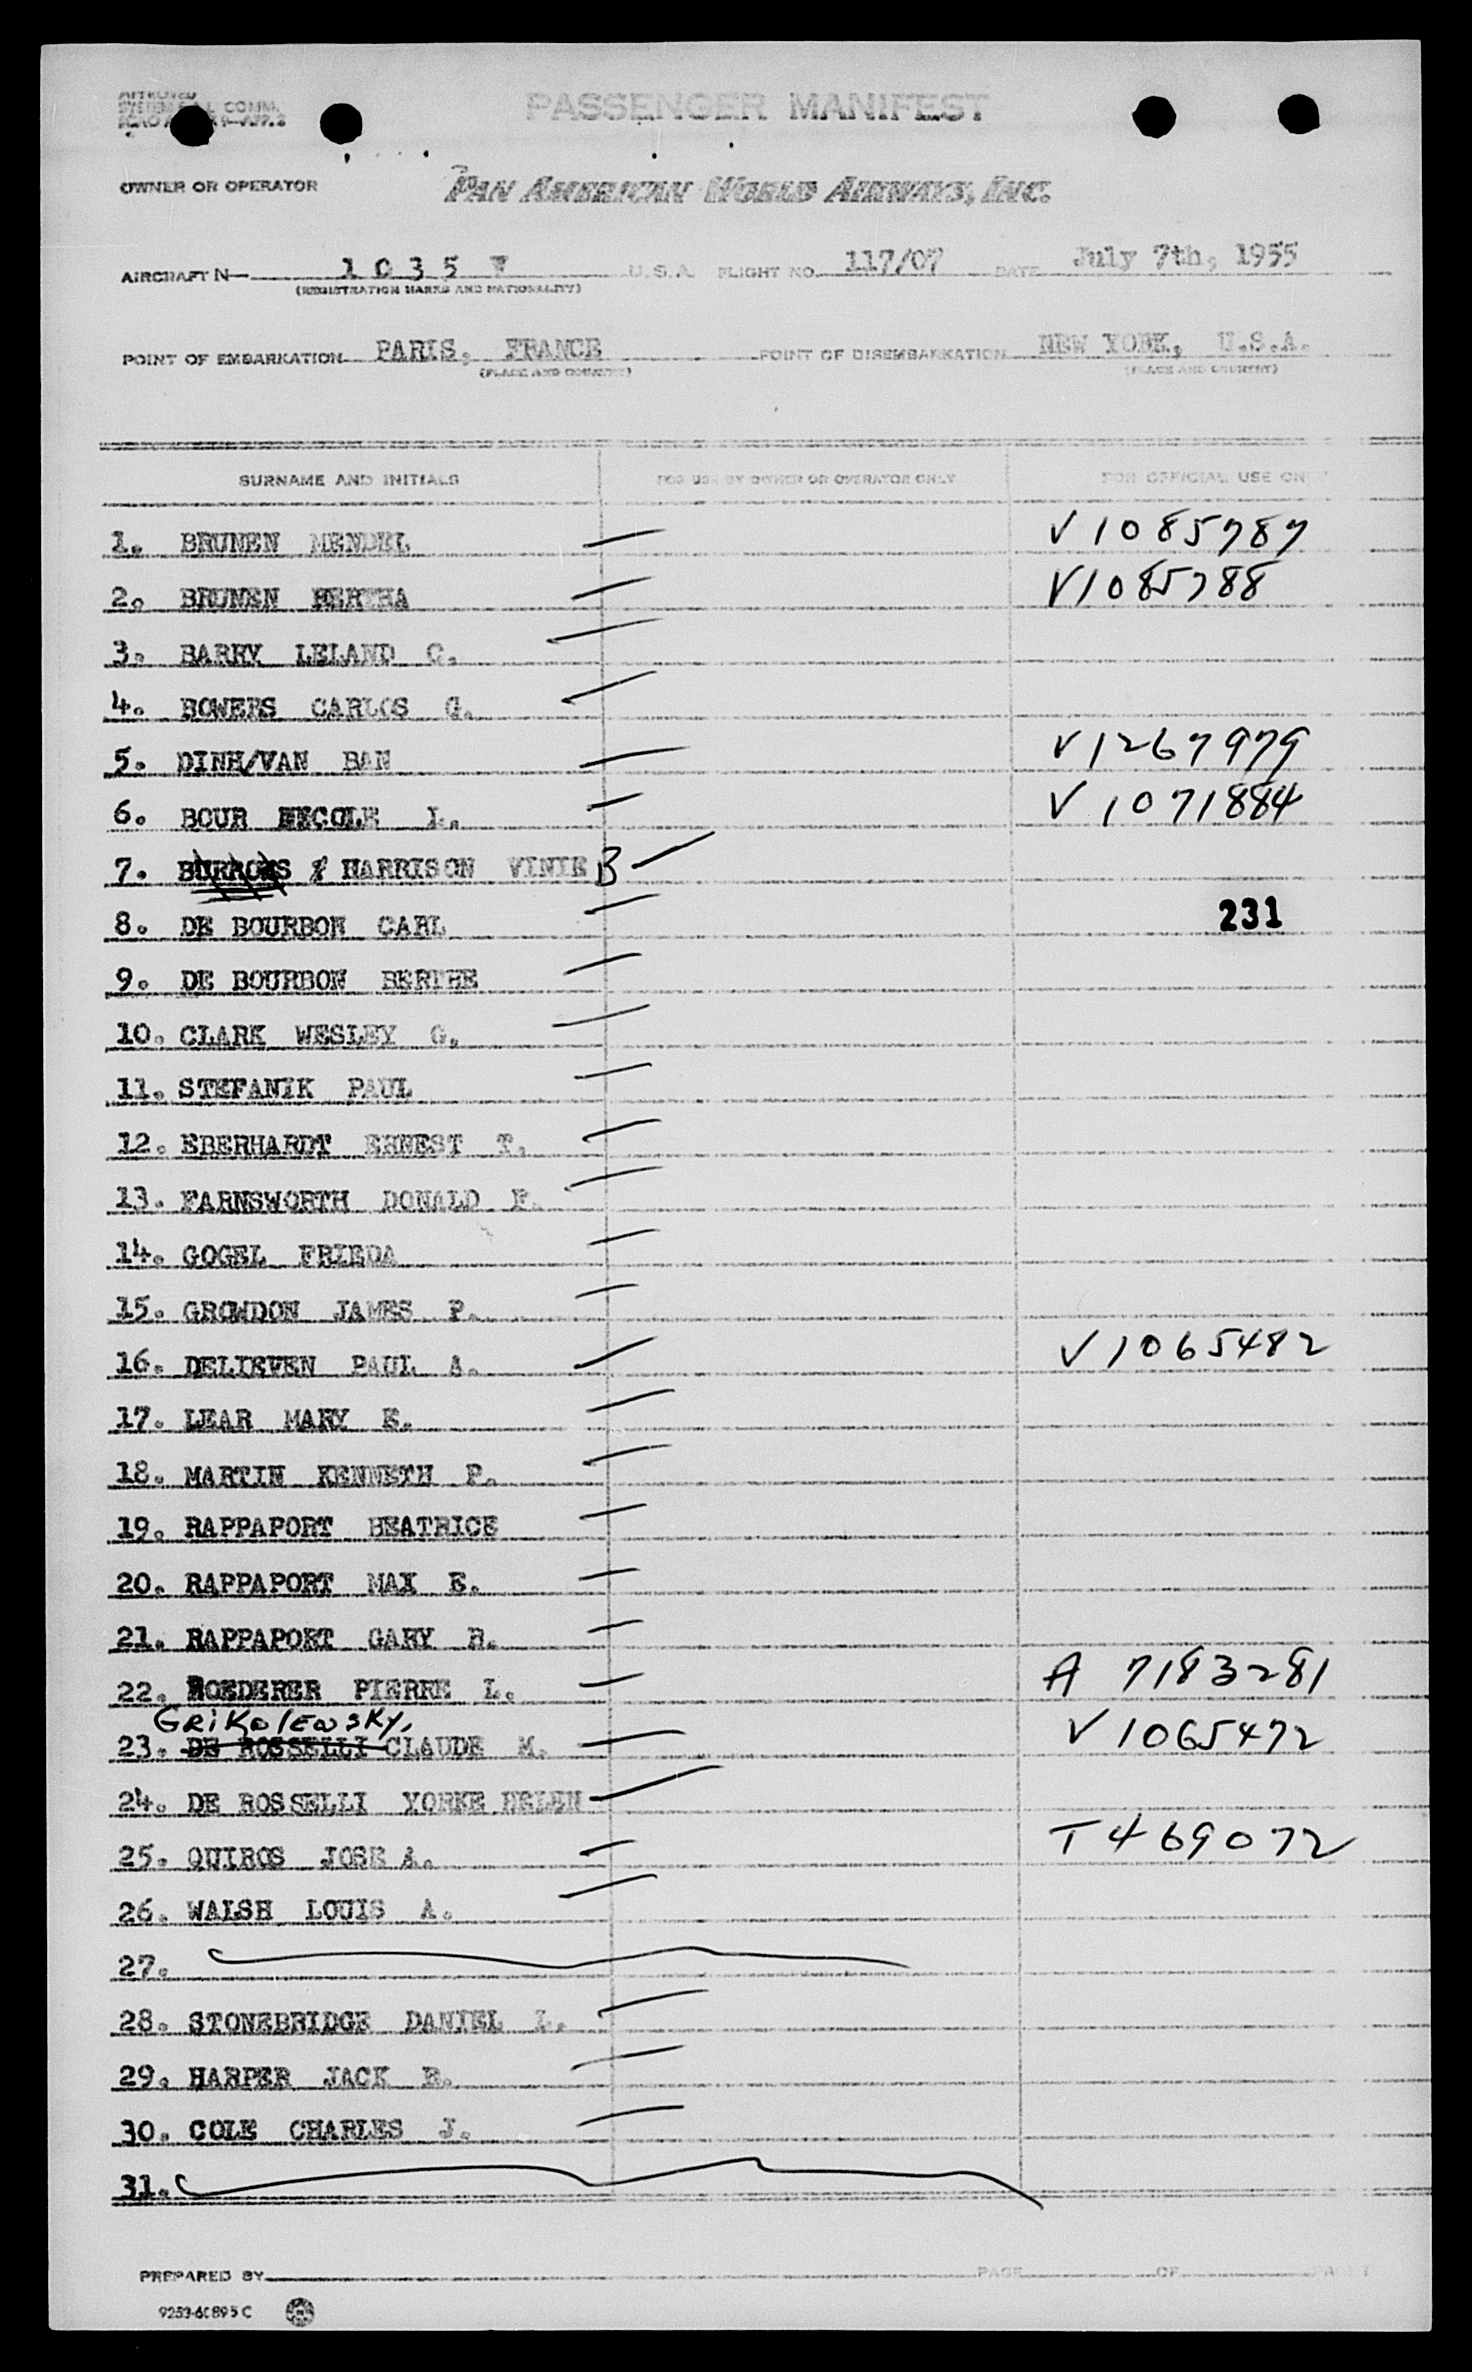 APPROVED
COMM.
PASSENGER MANIFEST
OWNER OR OPERATOR PAN AMERICAN WORLD AIRWAYS, INC.
AIRCRAFT N— 1 0 3 5 V U.S.A. FLIGHT NO. 117/07 DATE July 7th, 1955
(REGISTRATION MARKS AND NATIONALITY)
POINT OF EMBARKATION PARIS, FRANCE POINT OF DISEMBARKATION NEW YORK, U.S.A.
(PLACE AND COUNTRY) (PLACE AND COUNTRY)
SURNAME AND INITIALS FOR USE BY OWNER OR OPERATOR ONLY FOR OFFICIAL USE ONLY
1. BRUNEN MENDEL V 1085787
2. BRUNEN HERTHA V1085788
3. BARRY LELAND C.
4. BOWERS CARLOS G.
5. DINH/VAN BAN V1267979
6. BOUR NECOLE L. V 1071884
7. BURROWS & HARRISON VINIE B
8. DE BOURBON CARL 231
9. DE BOURBON BERTHE
10. CLARK WESLEY G.
11. STEFANIK PAUL
12. EBERHARDT ERNEST T.
13. FARNSWORTH DONALD F.
14. GOGEL FRIEDA
15. GROWDON JAMES P.
16. DELIEVEN PAUL A. V 1065482
17. LEAR MARY E.
18. MARTIN KENNETH P.
19. RAPPAPORT BEATRICE
20. RAPPAPORT MAX E.
21. RAPPAPORT GARY R.
22. ROEDERER PIERRE L. A 7183281
GRiKolEwsKy,
23. DE ROSSELLI CLAUDE M. V 1065472
24. DE ROSSELLI YORKE HELEN
25. QUIROS JOSE A. T 469072
26. WALSH LOUIS A.
27.
28. STONEBRIDGE DANIEL L.
29. HARPER JACK R.
30. COLE CHARLES J.
31.
PREPARED BY PAGE OF PAGES
9253-60895C